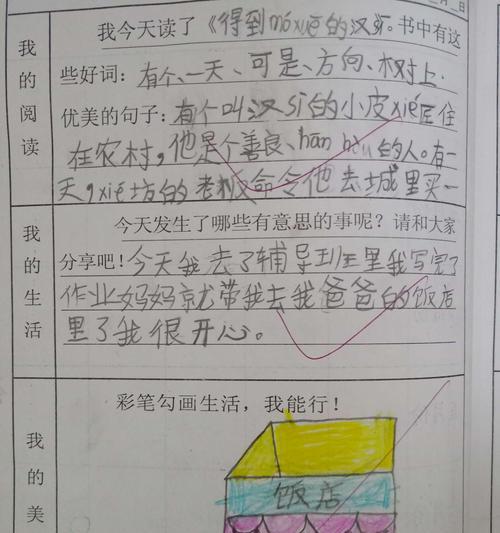 月 日
我的阅读
我今天读了《得到móxiē的汉斯。书中有这
些好词：有个、一天、可是、方向、树上.
优美的句子：有个叫汉Sī的小皮xié匠住
在农村，他是个善良、hān hòu的人。有一
天，xié坊的老板命令他去城里买一
我的生活
今天发生了哪些有意思的事呢？请和大家
分享吧！今天我去了辅导班里我写完了
作业妈妈就带我去我爸爸的饭店
里了我很开心。
我的美
彩笔勾画生活，我能行！
饭店